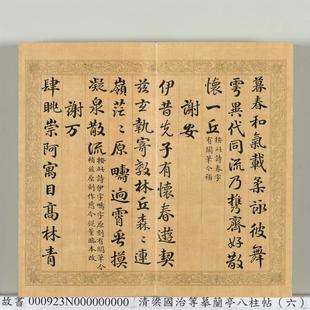 暮春和氣載柔詠彼舞
雩異代同流乃攜齊好散
懷一丘 按此詩春字有闕筆今補
謝安
伊昔先子有懷春遊契
茲玄執寄敖林丘森〻連
嶺茫〻原疇迥霄垂
凝泉散流 按此詩伊字原刻有闕筆今補茲原刻作悉今從董臨本改
謝万
肆眺崇阿寓目高林青
故書 000923N000000000 清梁國治等摹蘭亭八柱帖(六)